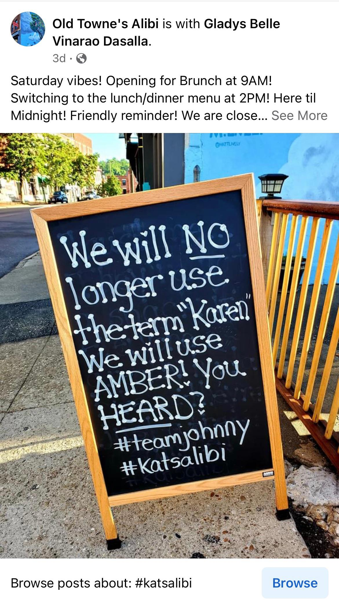 Old Towne's Alibi is with Gladys Belle
Vinarao Dasalla.
3d ·
Saturday vibes! Opening for Brunch at 9AM!
Switching to the lunch/dinner menu at 2PM! Here til
Midnight! Friendly reminder! We are close... See More
We will NO
longer use
the term "Karen"
We will use
AMBER! You
HEARD?
#teamjohnny
#katsalibi
Browse posts about: #katsalibi
Browse